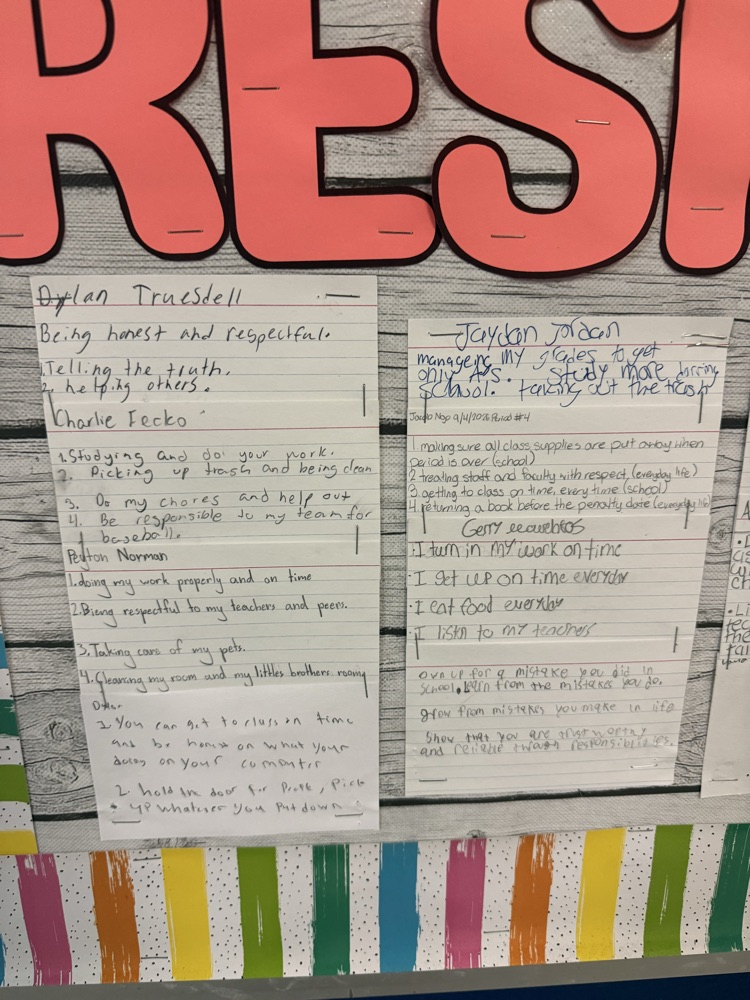 RESP
Dylan Truesdell
Being honest and respectful.
1. Telling the truth.
2. helping others.
Charlie Fecko
1. Studying and do your work.
2. Picking up trash and being clean
3. Do my chores and help out
4. Be responsible to my team for
baseball.
Peyton Norman
1. doing my work properly and on time
2. Bieng respectful to my teachers and peers.
3. Taking care of my pets.
4. Cleaning my room and my littles brothers room
1 You can get to class on time
and be honest on what your
doing on your
2 hold the door for , Pick
up whatever you put down
Jaydan Jordan
manageing my grades to get
only A's. Study more durring
School. taking out the trash
Period #4
1 making sure all class supplies are put away when
period is over (school)
2 treating staff and faculty with respect (everyday life)
3 getting to class on time, every time (school)
4. returning a book before the penalty date (everyday life)
Gerry
· I turn in my work on time
· I get up on time everyday
· I eat food everyday
· I listin to my teachers
own up for a mistake you did in
school, learn from the mistakes you do.
grow from mistakes you make in life
Show that you are trust worthy
and reliable through responsibilities.